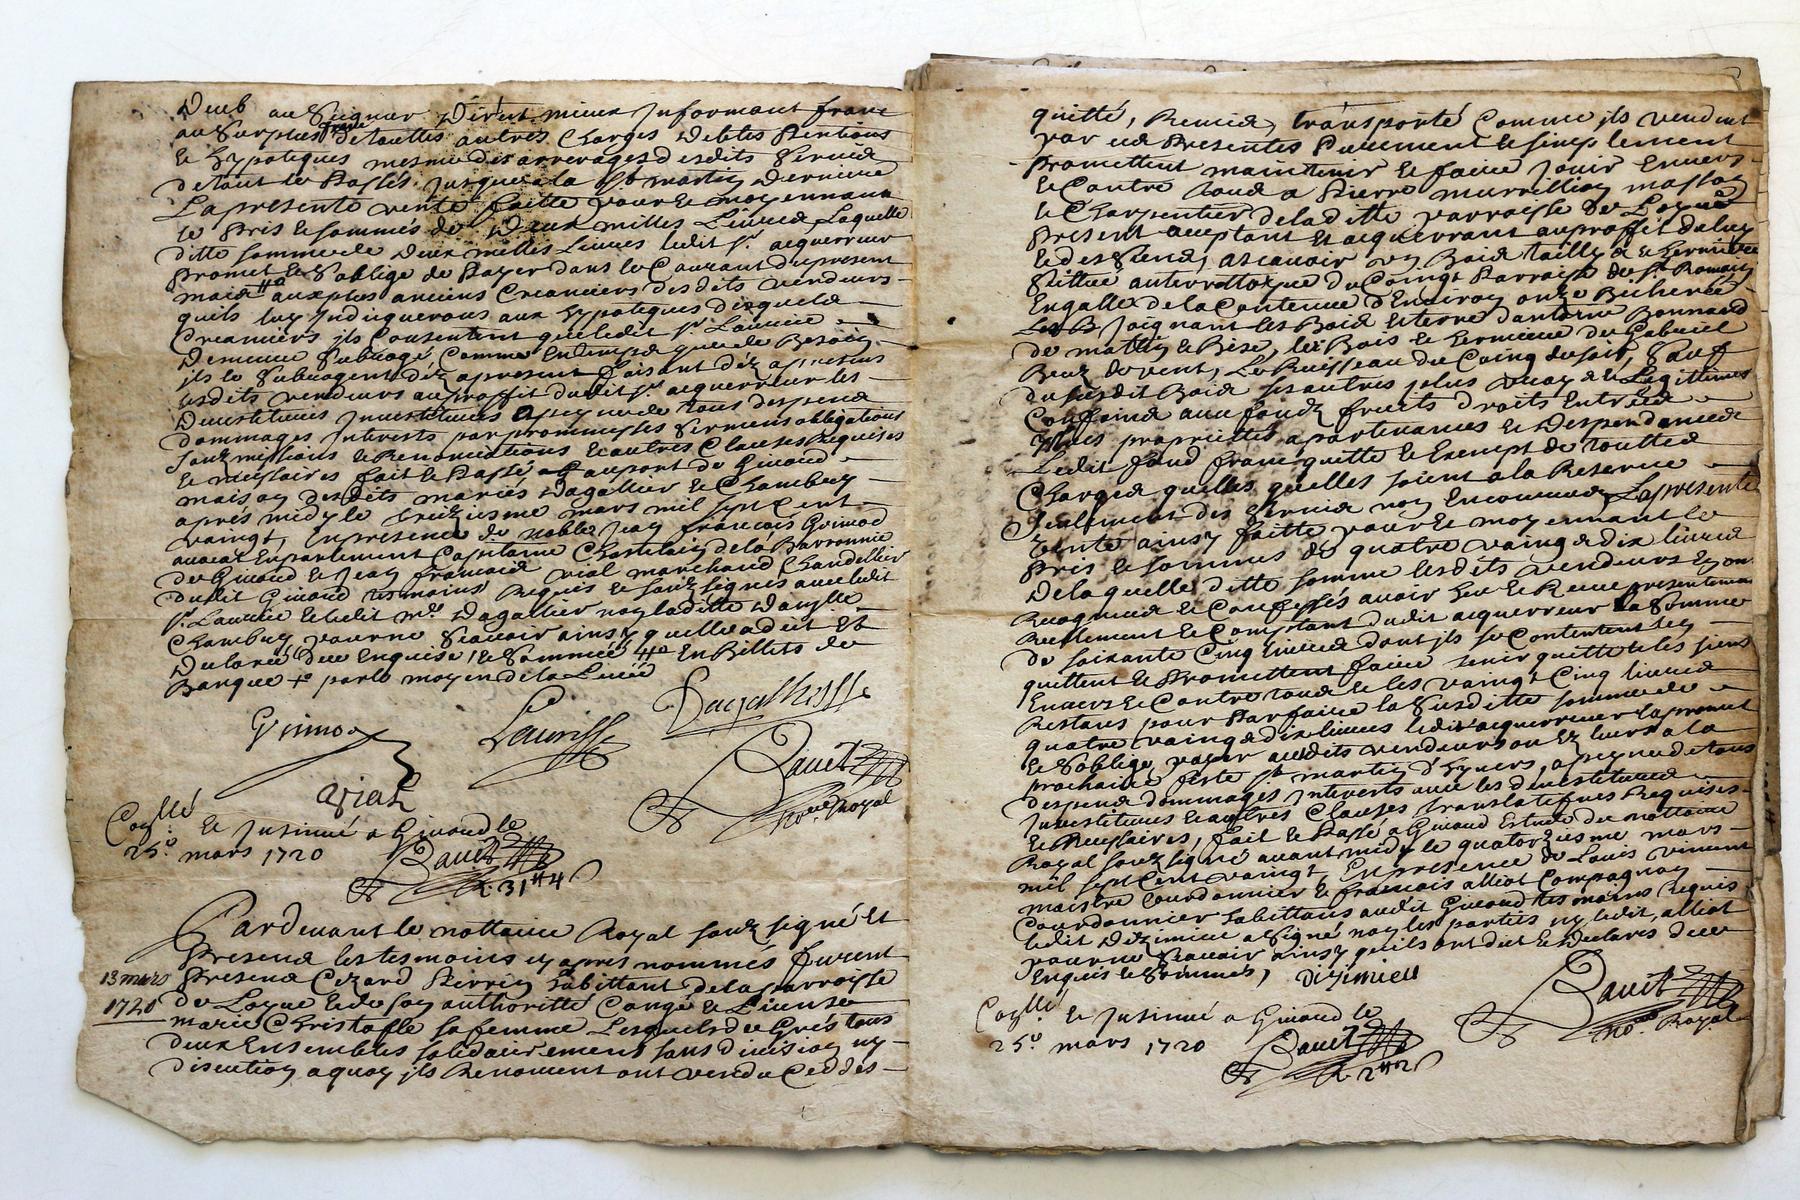 Deub au Seigneur Direct mieux Informant franc
au Surplus franc de touttes autres Charges debtes Pentions
& hypoteques mesme des arrerages desdits Servis
de tout le Passés Jusques a la St martin Derniere
La presente vente faitte pour & moyennant
le Pris & sommes de Deux milles Livres Laquelle
ditte somme de Deux milles Livres ledit sr acquerreur
Promet & S'oblige de Payer dans le Courant du present
mois aux plus anciens Creanciers desdits vendeurs
quils luy Indiquerons aux hypoteques desquels
Creanciers ils Consentent que ledit sr Laurice
Demeure Subrogé Comme En temps que de Besoin
ils le Subrogent déz apresent faisant déz apresens
lesdits vendeurs au proffit dudit sr acquerreur les
Devestitures Investitures a peyne de tous despens
dommages Interests par prommesses Sermens obligations
Soubmissions & Renonciations & autres Clauses Requises
& necessaires fait & Passé au port de Givord
maison desdits mariés Dagallier & Chambry
aprés midy le treiziesme mars mil sept cent
vaingt, En presence de noble Jean francois Grimod
avocat En parlement Capitaine Chastelain de la Barronnie
de Givord & Jean francois vial marchand Chandellier
dudit Givord tesmoins Requis & Soubsignés avec ledit
sr Laurice & ledit mr Dagallier non laditte Dame
Chambry pour ne Scavoir ainsy quelle a dit Et
Declaré deue Enquise & Sommée En Billets de
Banque + par le moyen de la
Grimod
vial
Royal
Et Insinué a Givord le
25e mars 1720
R. 31 tt 4
Pardevant le nottaire Royal soubsigné Et
Presens les tesmoins cy aprés nommés furent
13 mars
Presens Cezard Perrin habittant de la parroisse
1720
de Loyre & de son authoritté Congé & License
marie Christofle sa femme Lesquels de Grés tous
deux Ensembles solidairement sans division ny
discution a quoy ils Renoncent ont vendu Ceddés
quitté, Remis, transporté Comme ils vendent
par ces Presentes Purement & simplement
Promettent maintenir & faire Jouir Envers
& Contre tous a Pierre masson
& Charpentier de laditte parroisse de Loyre
Present acceptant & acquerrant au proffit de luy
& des Siens, ascavoir un Bois tailly
Scittué au territtoire du Coing Parroisse de St Romain
En galle de la Contenue d'Environ onze Bicherées
Joignant les Bois & terre d'antoine Bonnard
de matin & Bise, les Bois & de Gabriel
de vent, Le Ruisseau du Coing de soir, Sauf
dudit Bois ses autres plus vrays & Legittimes
Confins avec fonds fruits droits Entrées
Yssues proprietés apartenances & Despendances
Ledit fond franc quitte & Exempt de touttes
Charges quelles quelles soient a la Reserve
Seulement des Servis non Encourrus La presente
vente ainsy faitte pour & moyennant le
Pris & sommes de quatre vaingts dix livres
De laquelle ditte somme lesdits vendeurs ont
Recogneus & Confessés avoir heu & Receu presentement
Reellement & Comptant dudit acquerreur la Somme
de soixante Cinq livres dont ils se Contentent
quittent & Promettent faire tenir quitte & les siens
Envers & Contre tous & les vaingt Cinq livres
Restans pour Parfaire la Susditte somme de
quatre vaingts dix livres ledit acquerreur la promet
& S'oblige payer ausdits vendeurs ou Ez leurs a la
prochaine feste St martin d'hyvers, a peyne de tous
despens dommages Interests avec les devestitures
Investitures & autres Clauses translatives Requises
& Necessaires, fait & Passé a Givord Estude du nottaire
Royal soubsigné avant midy le quatorziesme mars
mil sept Cent vaingt, En presence de Louis vincent
maistre Courdonnier & francois alliot Compagnon
Courdonnier habittans audit Givord tesmoins Requis
ledit a Signé non les parties ny ledit alliot
pour ne Scavoir ainsy quils ont dit & Declarés deue
Enquis & Sommés,
no.re Royal
Et Insinué a Givord le
25e mars 1720
R. 2 tt 2